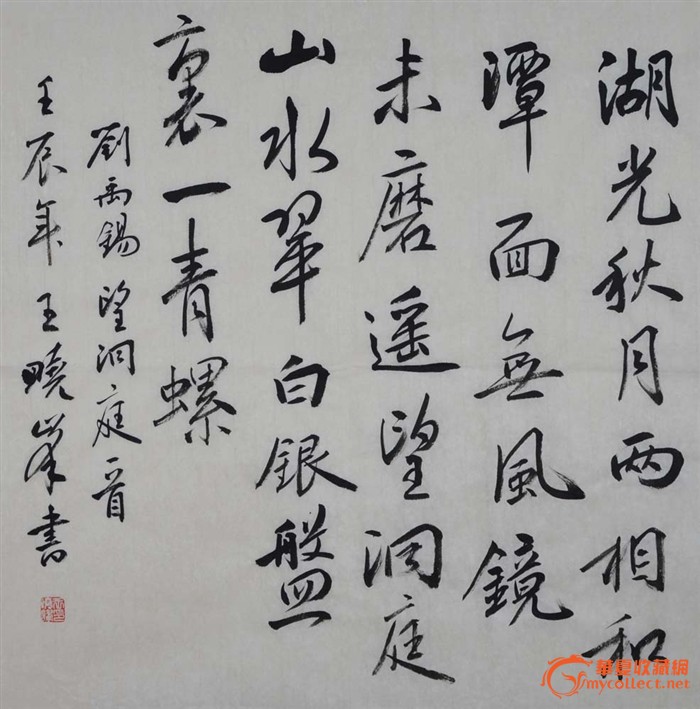 湖光秋月兩相和
潭面無風鏡
未磨遥望洞庭
山水翠白銀盤
裏一青螺
劉禹錫望洞庭一首
壬辰年王曉峯書
華夏收藏網
mycollect.net